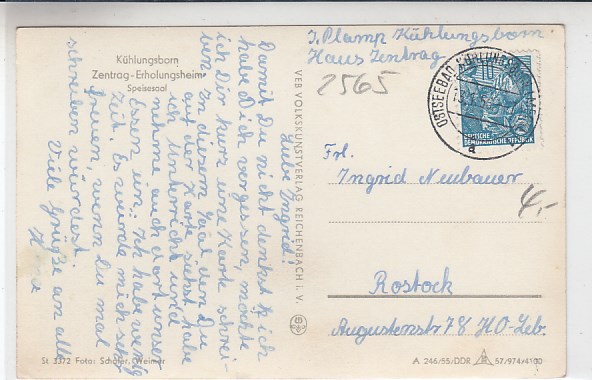 Kühlungsborn
Zentrag-Erholungsheim
Speisesaal
Liebe Ingrid!
Damit Du nicht denkst, ich
habe Dich vergessen, möchte
ich Dir kurz eine Karte schrei-
ben. In diesem Saal, den Du
auf der Karte siehst habe
ich Unterricht und
nehme auch dort unser
Essen ein. Ich habe wenig
Zeit. Es würde mich sehr
freuen, wenn Du mal
schreiben würdest.
Viele Grüße an alle
St 3372 Foto: Schäfer, Weimar
VEB VOLKSKUNSTVERLAG REICHENBACH i. V.
J. Plamp Kühlungsborn
Haus Zentrag
2565
OSTSEEBAD KÜHLUNGSBORN
a
10
DEUTSCHE
DEMOKRATISCHE REPUBLIK
Frl.
Ingrid Neubauer
4,-
Rostock
Augustenstr 78 HO-Leb.
A 246/55/DDR 57/974/4100